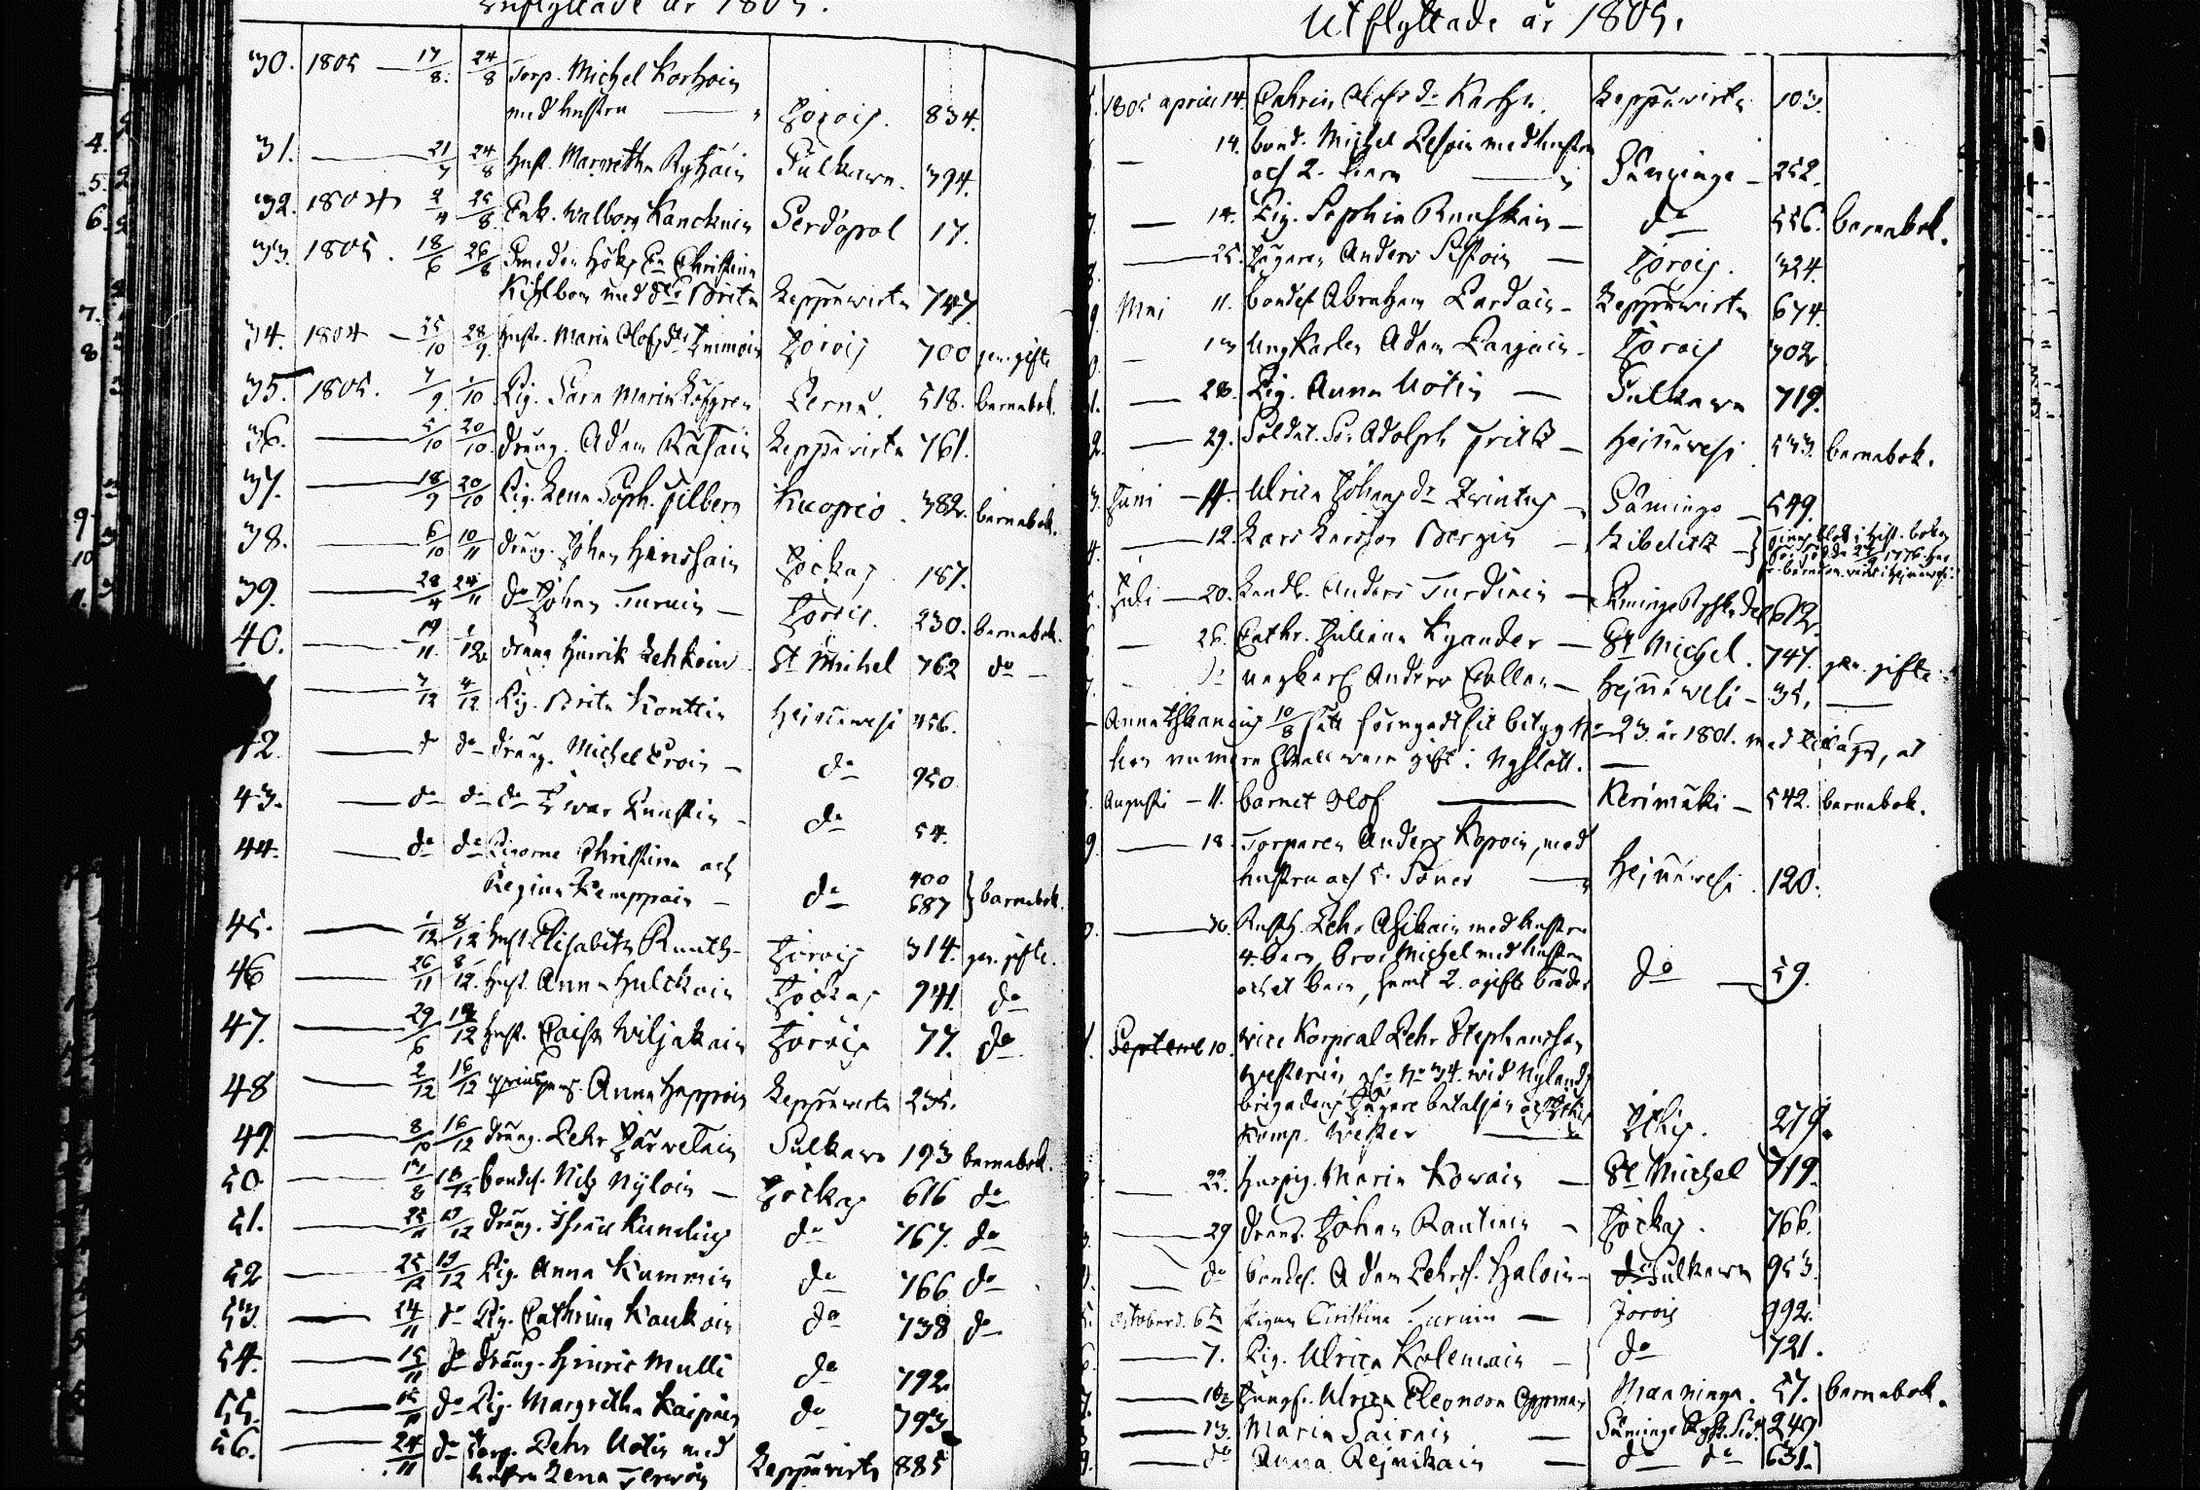 Inflyttade år 1805.
30. 1805 — 17/8. 24/8 Torp. Michel Korhoin
med hustru — " Jorois. 834.
31. — 21/7 24/8 Hust. Margretha Rythäin Sulkawa. 394.
32. 1804 2/4 25/8. Enk. Walborg Kanckuin Serdopol 17.
33. 1805. 18/6 26/8 Smeden Höks En. Christina
Kihlbom med dr Brita Leppäwirta 747.
34. 1804 — 25/10 28/9 Hustr. Maria Olofsdr Immoin Jorois 700 gen. gifte
35. 1805. 7/9 1/10 Pig. Sara Maria Löfgren Perno. 518. barnabok.
36. — 5/10 20/10. Dräng. Adam Räsäin Leppäwirta 761.
37. — 18/9 20/10 Pig. Lena Soph. Filberg Kuopio. 382. barnabok.
38. — 6/10 10/11 Dräng. Johan Hindsain Jockas 187.
39. — 28/4 24/11 do Johan Turuin — Jorois. 230. barnabok.
40. — 19/11. 1/12. Dräng Hinrik Lehkoin St Michel 762 do —
— 7/12 4/12 Pig. Brita Konttin Heinäwesi 456.
42. — do do Dräng. Michel Eroin — do 950
43. — do do do Iwar Kunstin — do 54.
44. — do do Pigorne Christina och
Regina Kemppain — do 400
687 } barnabok.
45. — 1/12 8/12 Hust. Elisabeth Ruuth — Jorois 314. gen. gifte.
46 — 26/11 8/12. Hust. Anna Hulckoin Jockas 941. do
47. — 29/6 14/12 Hust. Caisa Wiljakain Jorois 77. do
48 — 2/12 16/12 Anna Happoin Leppäwirta 235.
49. — 8/10 16/12 Dräng. Pehr Järweläin Sulkawa 193 barnabok.
50. — 17/8 18/12 bondes. Nils Nyloin — Jockas 616 do
51. — 25/11 19/12 Dräng. Isaac Kunelius do 767. do
52 — 25/12 19/12 Pig. Anna Kummin do 766 do
53. — 14/11 do Pig. Cathrina Kaukoin do 738 do
54. — 15/11 do Dräng. Hinric Mulli do 792.
55. — 15/11 do Pig. Margretha Kaipain do 793
56. — 24/11 do Torp. Pehr Uotin med
hustru Lena Terwoin Leppäwirta 885
Utflyttade år 1805.
1805 april 14. Cahrin Olofs dr Karhu. Leppäwirta 103.
— 14. bond. Michel Lesoin med hustru
och 2. barn — " Säminge — 252.
— 14. Pig. Sophia Ruuskain — do 556. barnabok.
— 25. Jägaren Anders Sistoin — Jorois. 324
Mai 11. bondes. Abraham Pardain — Leppäwirta 674.
— 13 ungkarlen Adam Laugain — Jorois 302
— 28. Pig. Anna Uotin — Sulkawa 719.
— 29. Soldat. Son Adolph Fritz — Heinäwesi 533. barnabok.
Juni — 4. Ulrica Johans dr Qvintus — Säminge — 549.
— 12. Lars Larsson Bergin — Libelitz —
Juli — 20. Landb. Anders Turdiain — Säminge Ryska Del 612.
— 26. Cathr. Juliana Kyander — St Michel. 747. gen. gifte
— ungkarl Anders Pellin — Hejnäwesi — 35. —
Anna 10/8 — 23. år 1801. med tillägg, at
hon numera skall wara gift i Nyslott. —
Augusti — 11. barnet Olof — Kerimäki — 542. barnabok.
— 18. Torparen Anders Koposin, med
hustru och 5. Söner — " Hejnäwesi. 120.
— 30. Rusth. Pehr Asikain med hustru
4. barn, bror Michel med hustru
och et barn, samt 2. ogifte bröder do — 59.
Septemb 10. Vice Korpral Pehr Stephansson
Westerin, No 34. wid Nylands
brigadens Jägare bataljon och
Komp. Wester — " 279.
— 22. Huspig. Maria Kowain — St Michel 719.
— 29 Dräng. Johan Rautiain — Jockas. 766.
— do bondes. Adam Pehrs. Haloin — Sulkawa 953.
Octobers. 6te Pigan Cristina Turuin — Jorois 992.
— 7. Pig. Ulrica Kolemain — do 721.
— 10. Jungfr. Ulrica Eleonora Oppman Maaninga. 57. barnabok.
— 13. Maria Sairain — Säminge Rysk. Sid. 249
— do Anna Rejnikain — do do 631.